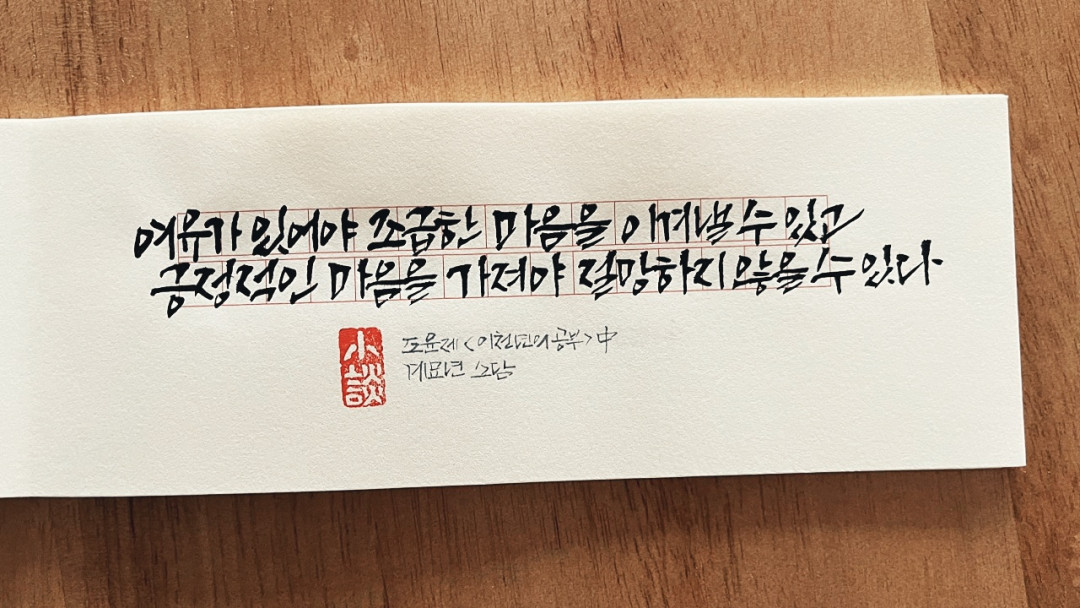 여유가 있어야 조급한 마음을 이겨낼 수 있고
긍정적인 마음을 가져야 절망하지 않을 수 있다.
小談
조윤제 <이천년의 공부> 中
계묘년 소담